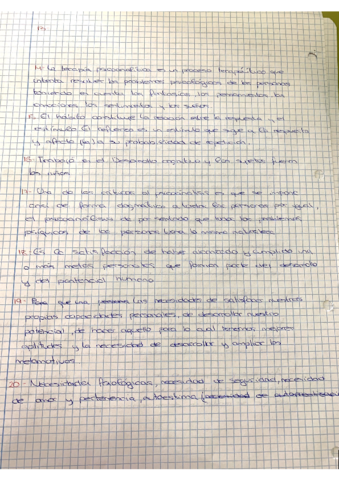 14. La terapia psicoanalítica es un proceso terapéutico que
intenta resolver los problemas psicológicos de las personas
teniendo en cuenta las fantasías, los pensamientos, las
emociones, los sentimientos y los sueños.
El hábito constituye la relación entre la respuesta y el
estímulo. El refuerzo es un estímulo que sigue a la respuesta
y afecta (a) la su probabilidad de repetición.
16- Trabajó en el Desarrollo cognitivo y sus sujetos fueron
los niños
17- Una de las críticas al psicoanálisis es que se impone
de forma dogmática a todas las personas por igual,
el psicoanálisis da por sentado que todos los problemas
psíquicos de las personas tienen la misma naturaleza.
18. Es la satisfacción de haber alcanzado y cumplido una
o más metas personales que forman parte del desarrollo
y del potencial humano
19- las necesidades de satisfacer nuestras
propias capacidades personales, de desarrollar nuestro
potencial, de hacer aquello para lo cual tenemos mejores
aptitudes y la necesidad de desarrollar y ampliar los
metamotivos.
20- Necesidades fisiológicas, necesidad de seguridad, necesidad
de amor y pertenencia, autoestima,